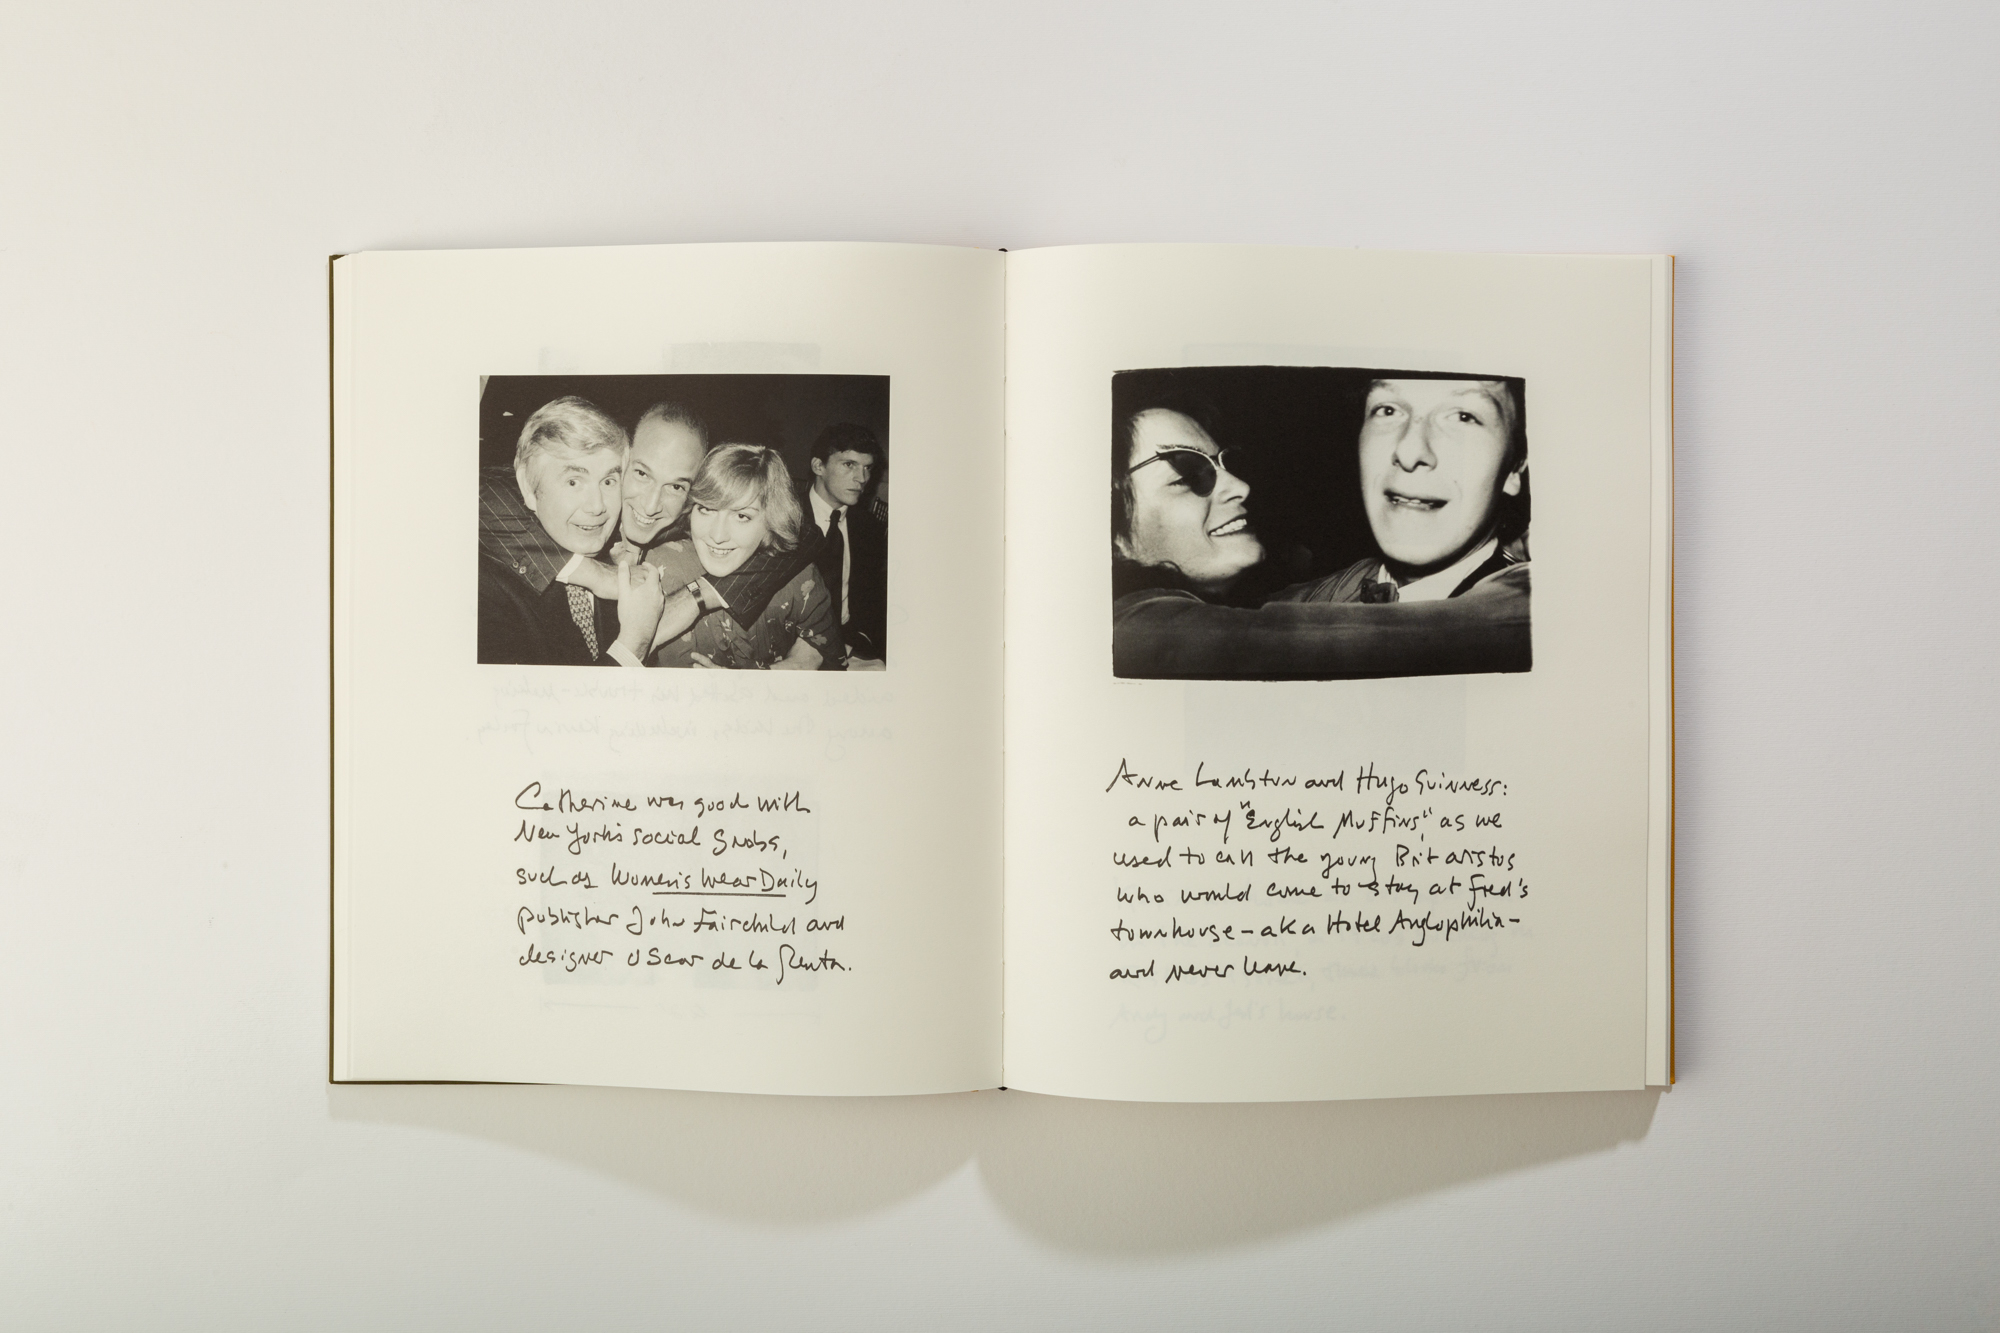 Catherine was good with
New York's social snobs,
such as Women's Wear Daily
publisher John Fairchild and
designer Oscar de la Renta.
Anne Lambton and Hugo Guinness:
a pair of "English Muffins," as we
used to call the young Brit aristos
who would come to stay at Fred's
townhouse – aka Hotel Anglophilia –
and never leave.